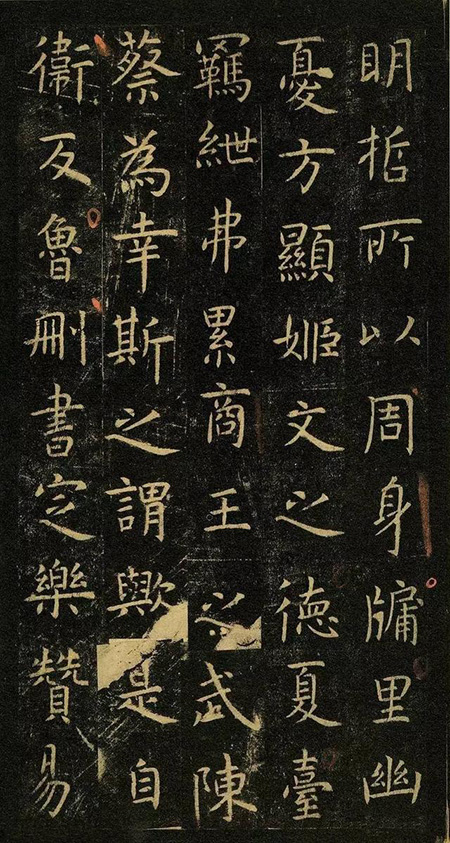 明哲所以周身牖里幽
憂方顯姬文之德夏臺
羈紲弗累商王之武陳
蔡為幸斯之謂歟是自
衞反魯刪書定樂贊易